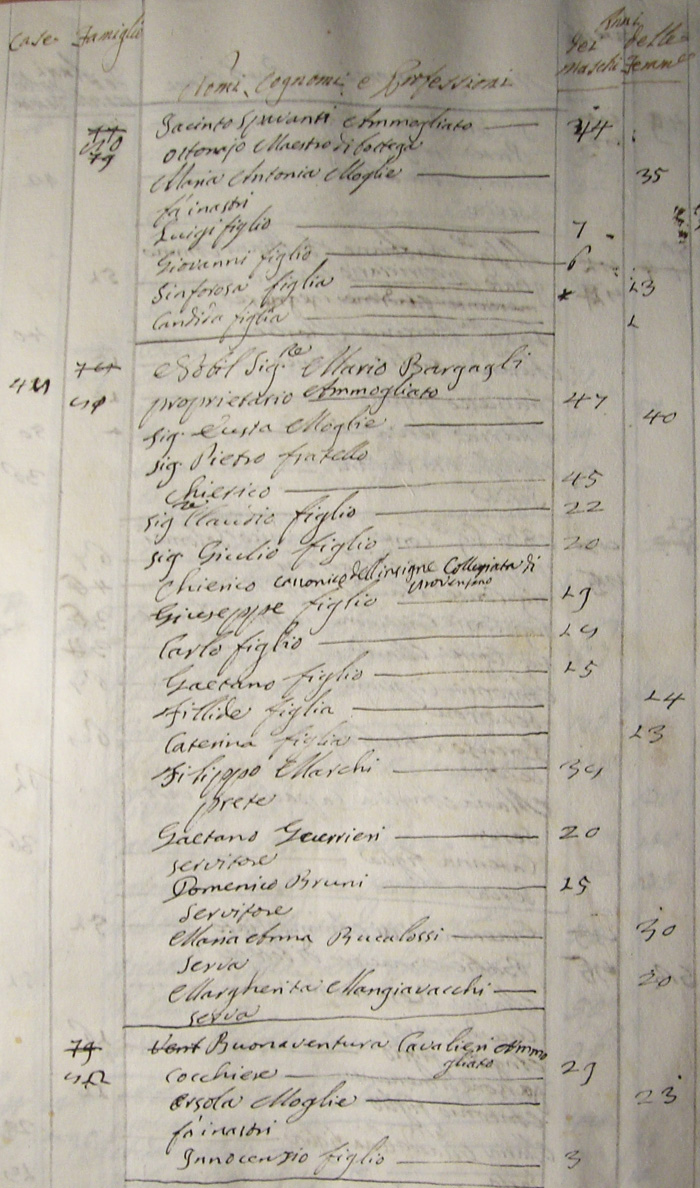 Case Famiglie
Nomi, Cognomi, e Professioni
Anni
dei Maschi
delle Femmine
79
Giacinto Ammogliato 44
Ottonajo Maestro di bottega
Maria Antonia Moglie 35
fà inastri
Luigi figlio 7
Giovanni figlio 6
Sinforosa figlia 13
Candida figlia 1
Nobil Sig.re Mario Bargagli
proprietario Ammogliato 47
sig. Moglie 40
sig. Pietro fratello
Chierico 45
sig.re Claudio figlio 22
sig. Giulio figlio 20
Chierico canonico dell'insigne Collegiata di
Provenzano
Giuseppe figlio 19
Carlo figlio
Gaetano figlio 15
Fillide figlia 14
Caterina figlia 13
Filippo Marchi
prete
Gaetano Guerrieri 20
servitore
Domenico Bruni 15
servitore
Maria Anna Bucalossi 30
serva
Margherita Mangiavacchi 20
serva
79 Vent Buonaventura Cavalieri Ammo
gliato
cocchiere 29
Orsola Moglie 23
fà inastri
Innocenzio figlio 3